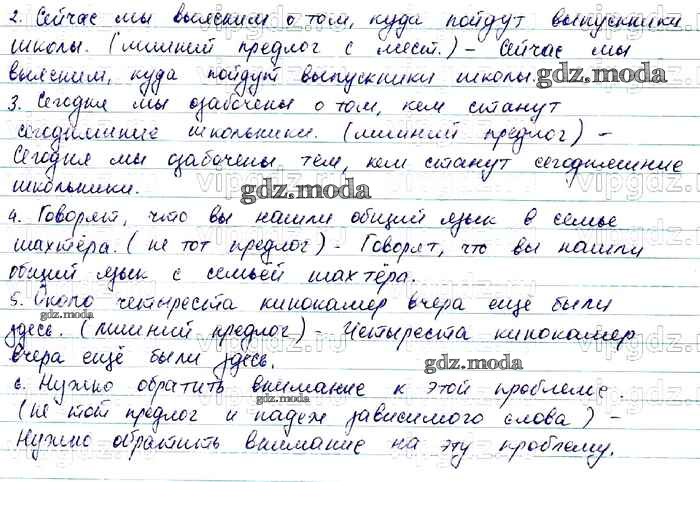 2. Сейчас мы выясним о том, куда пойдут выпускники
школы. (лишний предлог с мест.) – Сейчас мы
выясним, куда пойдут выпускники школы.
gdz.moda
3. Сегодня мы озабочены о том, кем станут
сегодняшние школьники. (лишний предлог) –
Сегодня мы озабочены тем, кем станут сегодняшние
школьники.
gdz.moda
4. Говорят, что вы нашли общий язык в семье
шахтёра. (не тот предлог) – Говорят, что вы нашли
общий язык с семьёй шахтёра.
5. Около четыреста кинокамер вчера ещё были
gdz.moda
здесь. (лишний предлог) – Четыреста кинокамер
вчера ещё были здесь.
gdz.moda
6. Нужно обратить внимание к этой проблеме.
gdz.moda
(не тот предлог и падеж зависимого слова) –
Нужно обратить внимание на эту проблему.